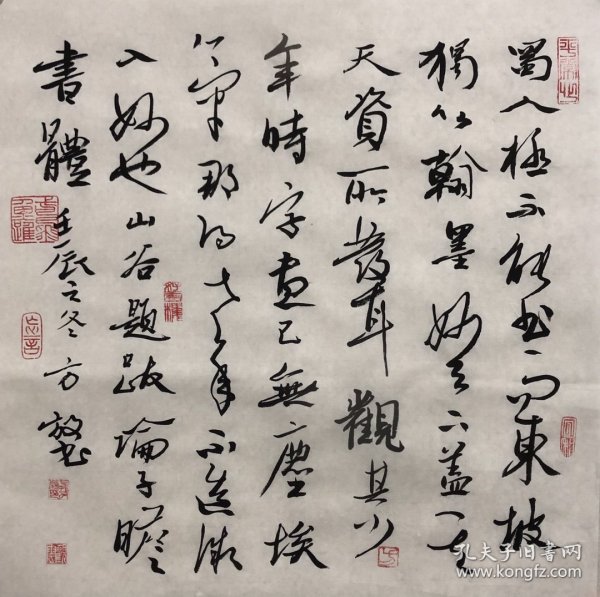 蜀人极不能书而东坡
独以翰墨妙天下盖其
天資所發耳觀其少
年時字畫已無塵埃
氣那得老年不造微
入妙也山谷題跋論子瞻
書體
壬辰之冬方放书
孔夫子旧书网
www.kongfz.com